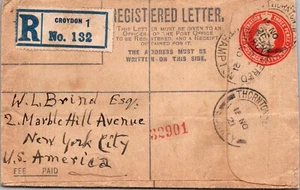 REGISTERED LETTER.
THIS LETTER MUST BE GIVEN TO AN
OFFICER OF THE POST OFFICE
TO BE REGISTERED, AND A RECEIPT
OBTAINED FOR IT.
THE ADDRESS MUST BE
WRITTEN ON THIS SIDE.
R
CROYDON 1
No. 132
THORNTON
W.L. Brind Esq.
2. Marble Hill Avenue
New York City
U.S. America
32901
FEE PAID